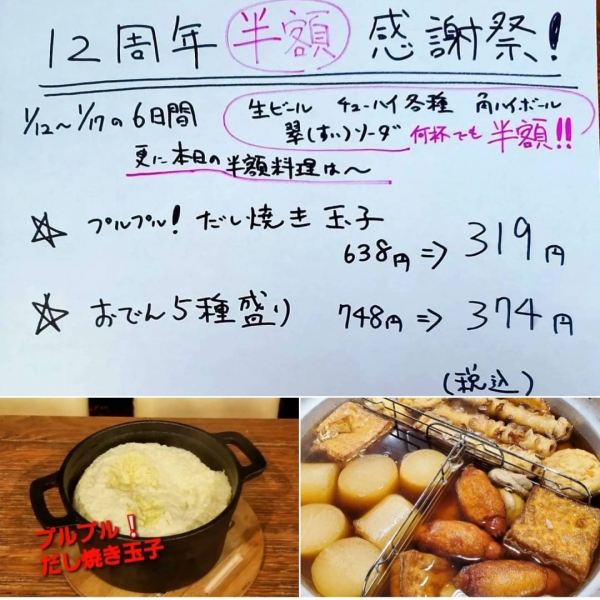 12周年 半額 感謝祭!
1/12〜1/17の6日間
生ビール チューハイ各種 角ハイボール
翠(すい)ソーダ 何杯でも 半額!!
更に本日の半額料理は〜
☆ プルプル! だし焼き玉子
638円⇒319円
☆ おでん5種盛り 748円⇒374円
(税込)
プルプル!
だし焼き玉子